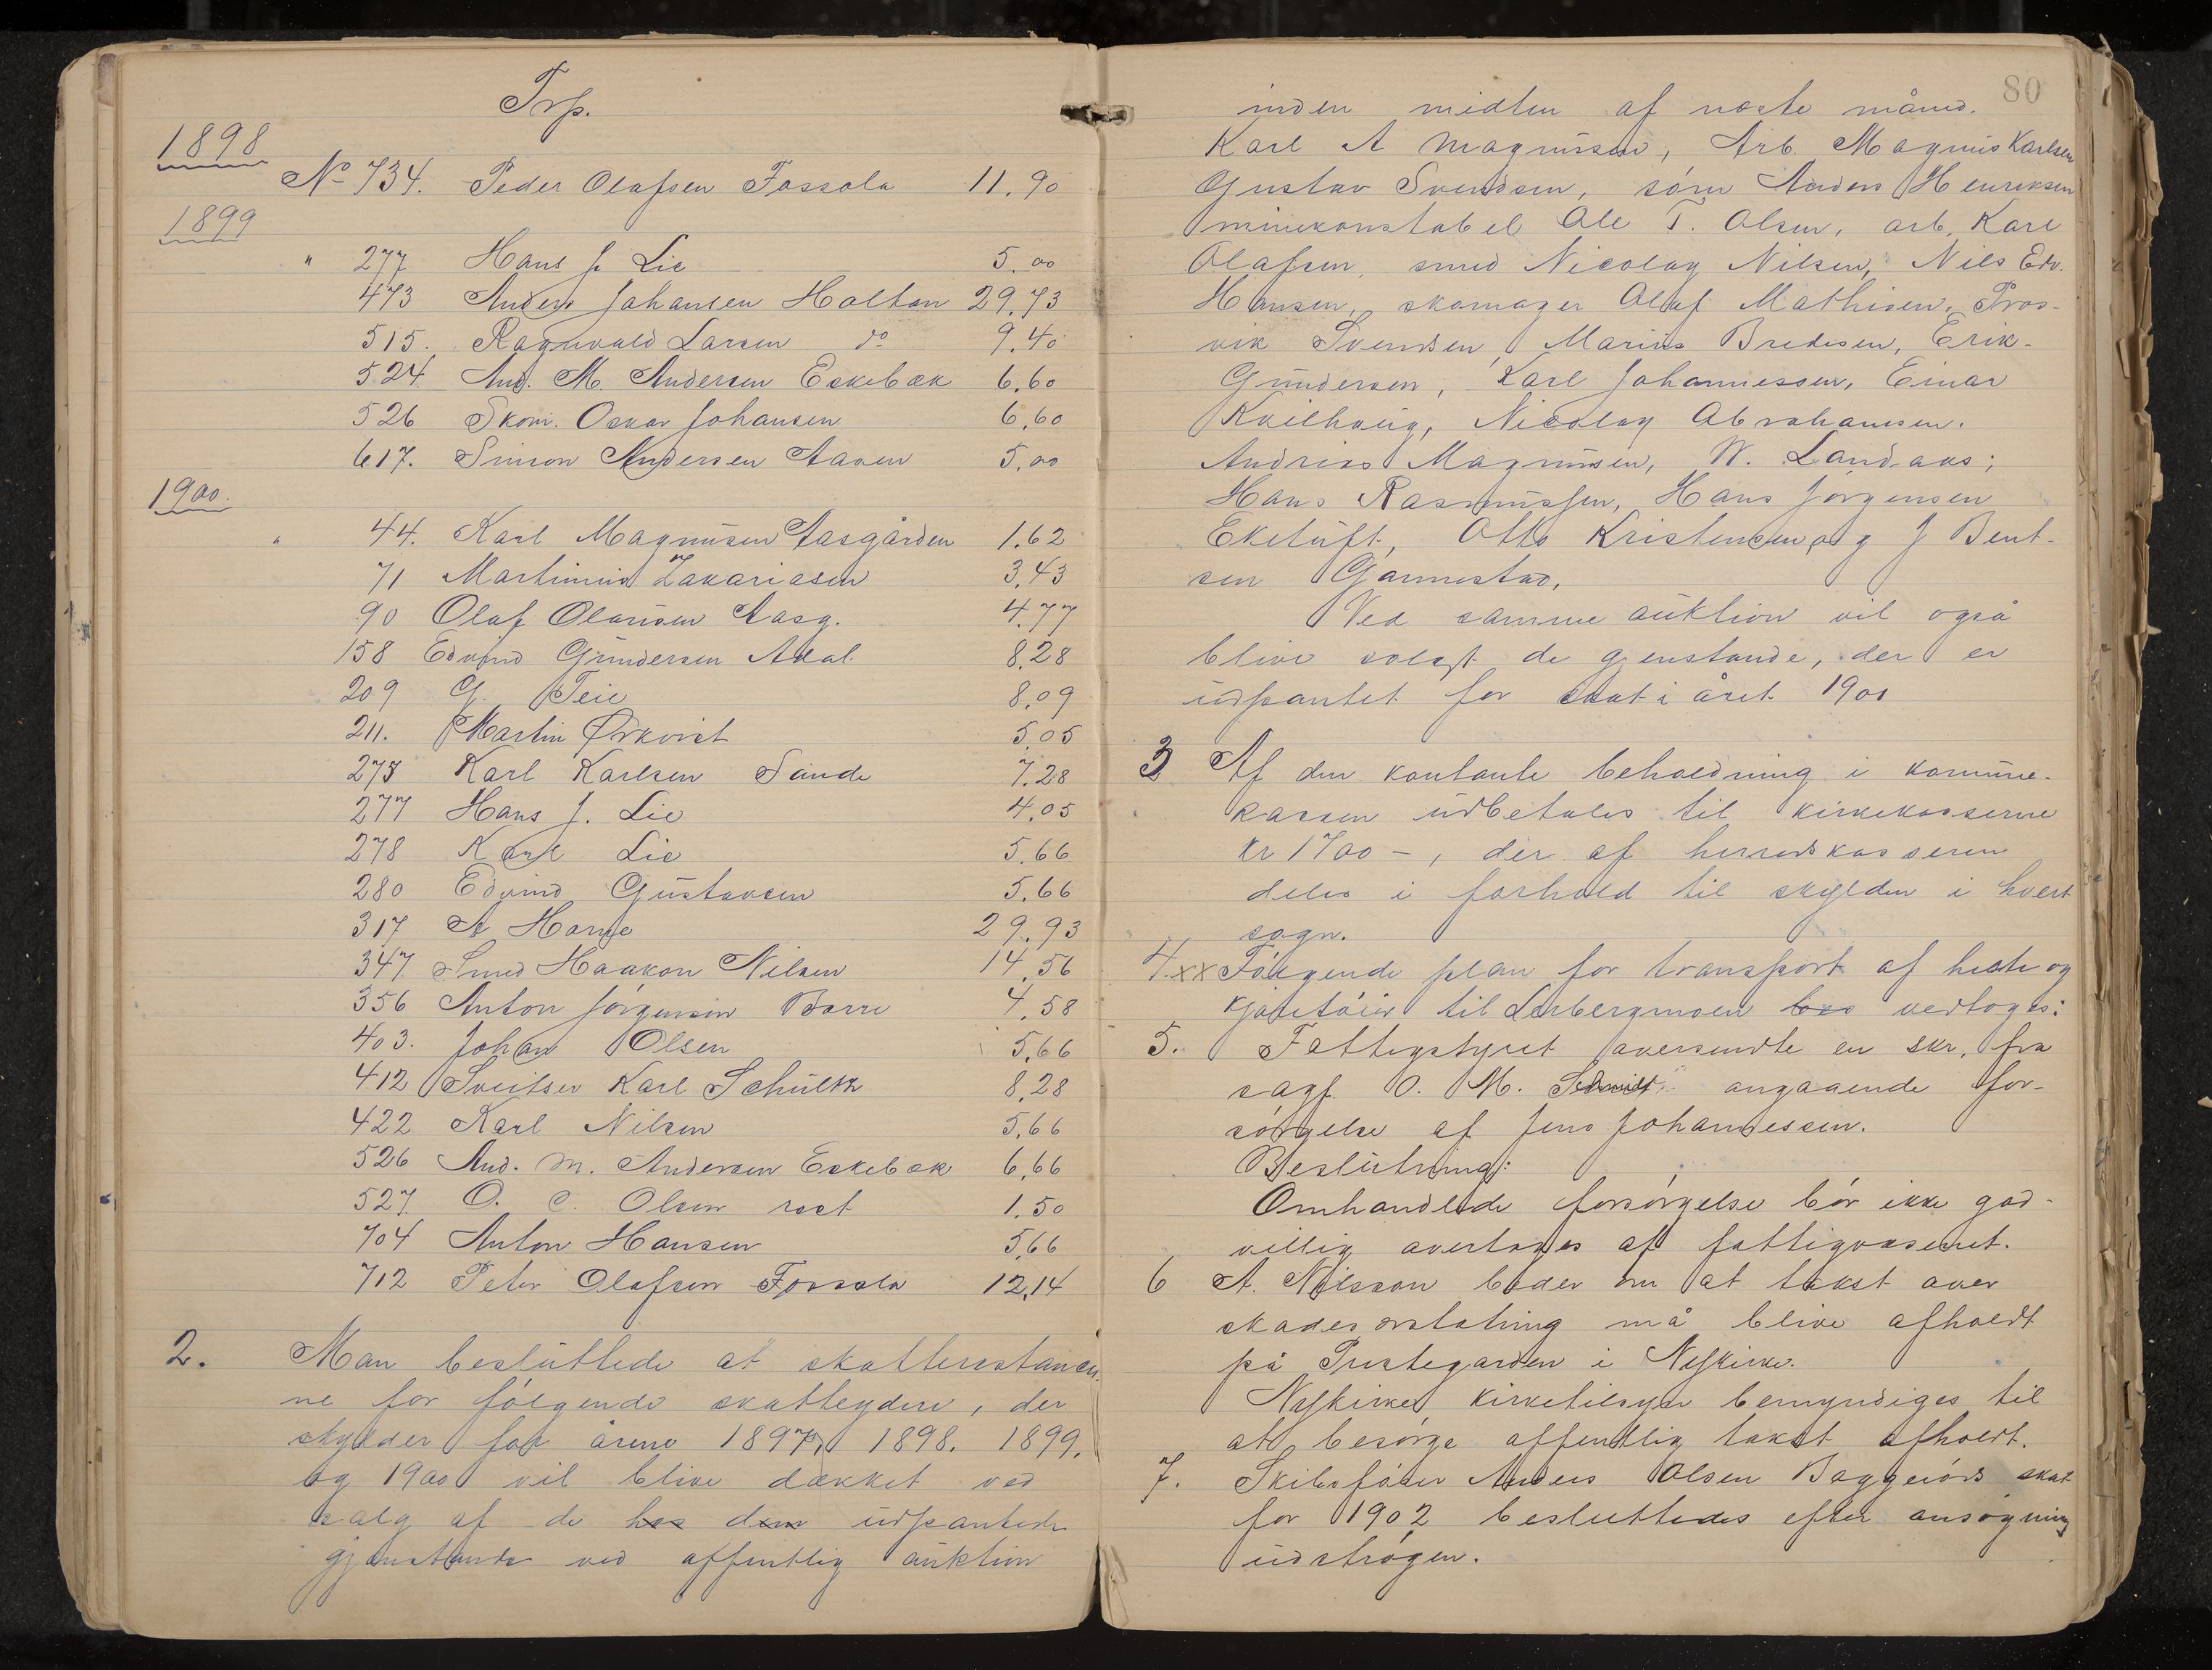 Trp.
1898
No 734. Peder Olafsen Fossola 11.90
1899
" 277 Hans J. Lie 5.00
473 Anders Johansen Holtan 29.73
515. Ragnvald Larsen do 9.40
524 And. M. Andersen Eskebæk 6.60
526 Skom. Oskar Johansen 6.60
617. Simon Andersen Aasen 5,00
1900.
" 44. Karl Magnusen Aasgården 1.62
71 Martinius Zakariasen 3,43
90 Olaf Olausen Aasg. 4.77
158 Edvind Gundersen Adal. 8.28
209 G. Teie 8,09
211. Martin Ørkvist 5,05
275 Karl Karlsen Sande 7.28
277 Hans J. Lie 4,05
278 Karl Lie 5.66
280 Edvind Gustavsen 5.66
317 A Horne 29.93
347. Smed Haakon Nilsen 14,56
356 Anton Jörgensen Borre 4,58
403. Johan Olsen 5,66
412 Sveitser Karl Schultz 8,28
422 Karl Nilsen 5,66
526 And. M. Andersen Eskebæk 6,66
527. O. C. Olsen rest 1.50
704 Anton Hansen 5,66
712 Peter Olafsen Fossola 12,14
2. Man besluttede at skatterestancer
ne for fölgende skatteydere, der
skylder for årene 1897, 1898. 1899.
og 1900 vil blive dækket ved
salg af de hos dem udpantede
gjenstande ved offentlig auktion
80
inden midten af næste måned.
Karl A Magnussen, Arb. Magnus Karlsen
Gustav Svendsen, söm Anders Henriksen
minekonstabel Ole T. Olsen, arb. Karl
Olafsen, smed Nicolay Nilsen, Nils Edv.
Hansen, skomager Olaf Mathisen, Pros-
vik Svendsen, Marius Bredesen, Erik-
Gundersen, Karl Johannessen, Einar
Kvilhaug, Nicolay Abrahamsen.
Andreas Magnusen, N. Landaas;
Hans Rasmussen, Hans Jörgensen
Eketuft, Otto Kristensen og J Bent-
sen Gannestad.
Ved samme auktion vil også
blive solgt de gjenstande, der er
udpantet for skat i året 1901
3 Af den kontante beholdning i kommune-
kassen udbetales til kirkekasserne
kr 1700 -, der af herredskasseren
deles i forhold til skylden i hvert
sogn.
4.xx Fölgende plan for transport af heste og
kjöretöier til Lerbergmoen bes vedtoges:
5. Fattigstyret oversendte en skr. fra
sagf. O. M. Schmidt angaaende for-
sörgelse af Jens Johannessen.
Beslutning:
Omhandlede forsörgelse bör ikke god-
villig overtages af fattigvæsenet.
6 A. Nilsson beder om at takst over
skadeserstatning må blive afholdt
på Prestegarden i Nykirke.
Nykirke kirketilsyn bemyndiges til
at besörge offentlig takst afholdt.
7. Skibsförer Anders Olsen Baggeröds skat
for 1902 besluttedes efter ansögning
udströgen.